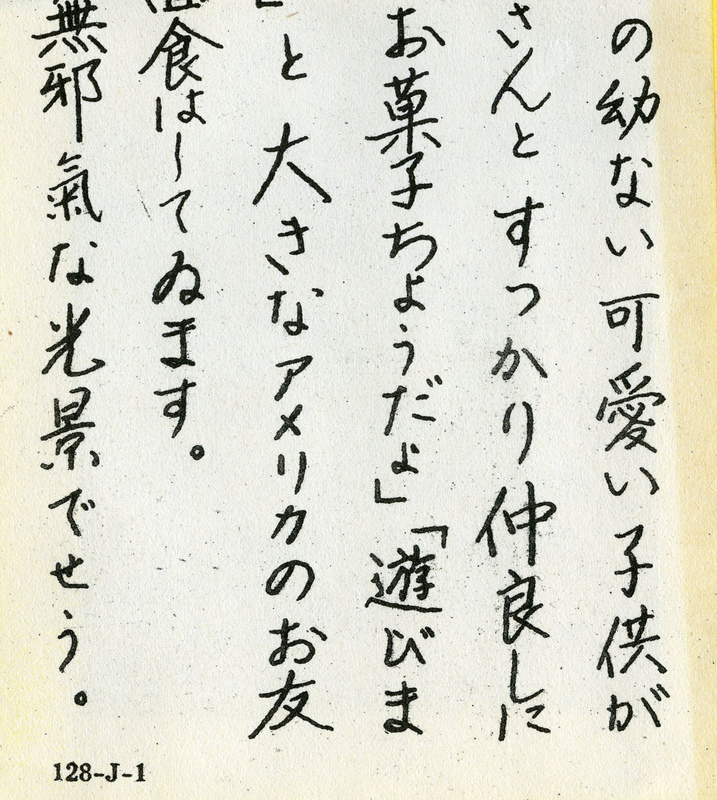 の幼ない可愛い子供が
さんとすっかり仲良しに
お菓子ちょうだよ」「遊びま
と大きなアメリカのお友
食はしてゐます。
無邪氣な光景でせう。
128-J-1